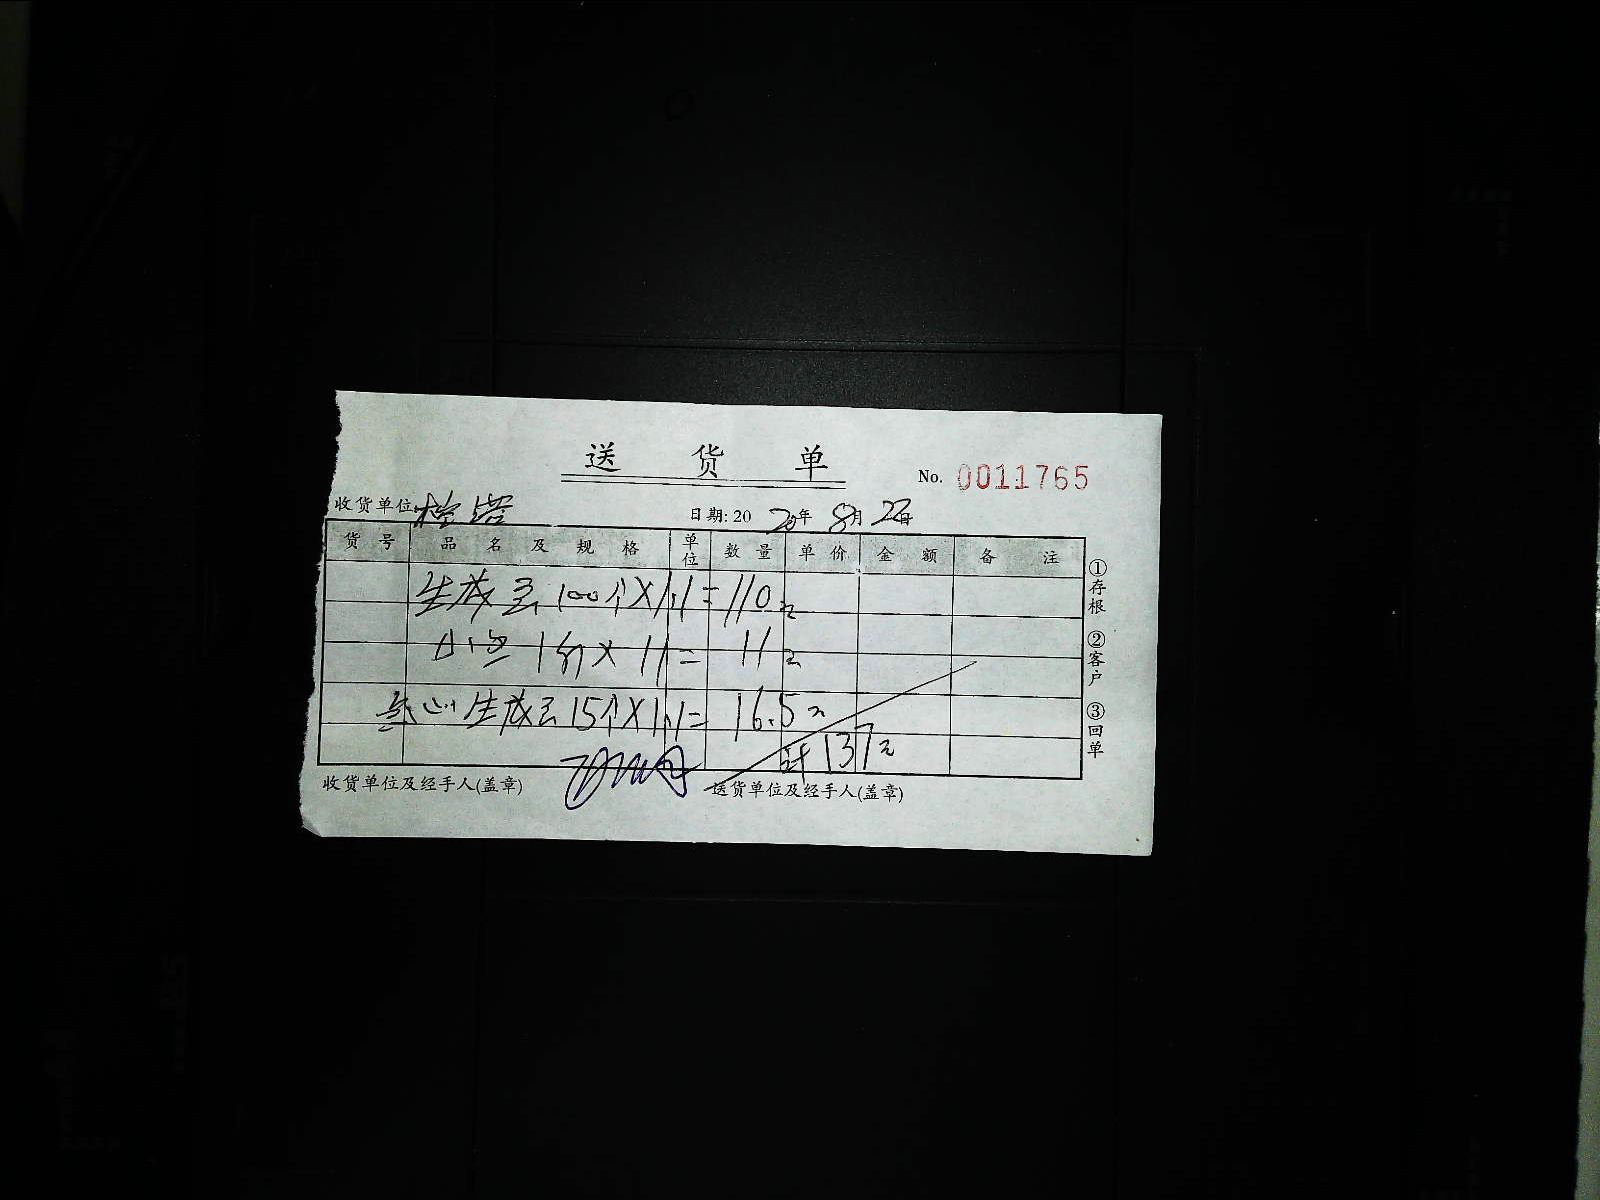 送货单
No. 0011765
收货单位 日期:2020年8月22日
货号 品名及规格 单位 数量 单价 金额 备注
生成 100个×1.1=110元
1份×11=11元
生成 15个×1.1=16.5元
计137元
收货单位及经手人(盖章) 送货单位及经手人(盖章)
①存根 ②客户 ③回单